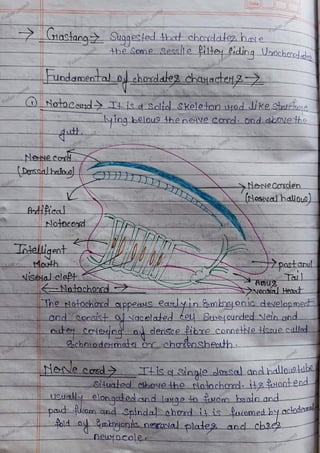 → Grastang → Suggested that chordates have
the same sessile filter fiding Urochordates
Fundamental of chordates characters →
① Notocord → It is a solid skeleton rod like structure
lying belous the nerve cord. and above the
gutt.
Nerve cord
(Dorsal hallous)
Nerve Corden
(Nearval hallous)
Artifical
Notocord
Intelligent
Mouth
Visheral cleft
← Notochord →
postanul
Tail
Anus
Ventral Heart
The Notochord appears early in Embryonic development
and consist of vacelated cell Surrounded Vein and
outer covering of densce fibre connetive tissue called
Echinodermata or chorensheath.
Nerve cord → It is a single dorsal and hallous tube
situated above the Notochord. its front end
usually elongated and large to from brain and
past from and Spindal chord it is formed by ectodermal
fold of Embryonic neural plates and
neurocole.